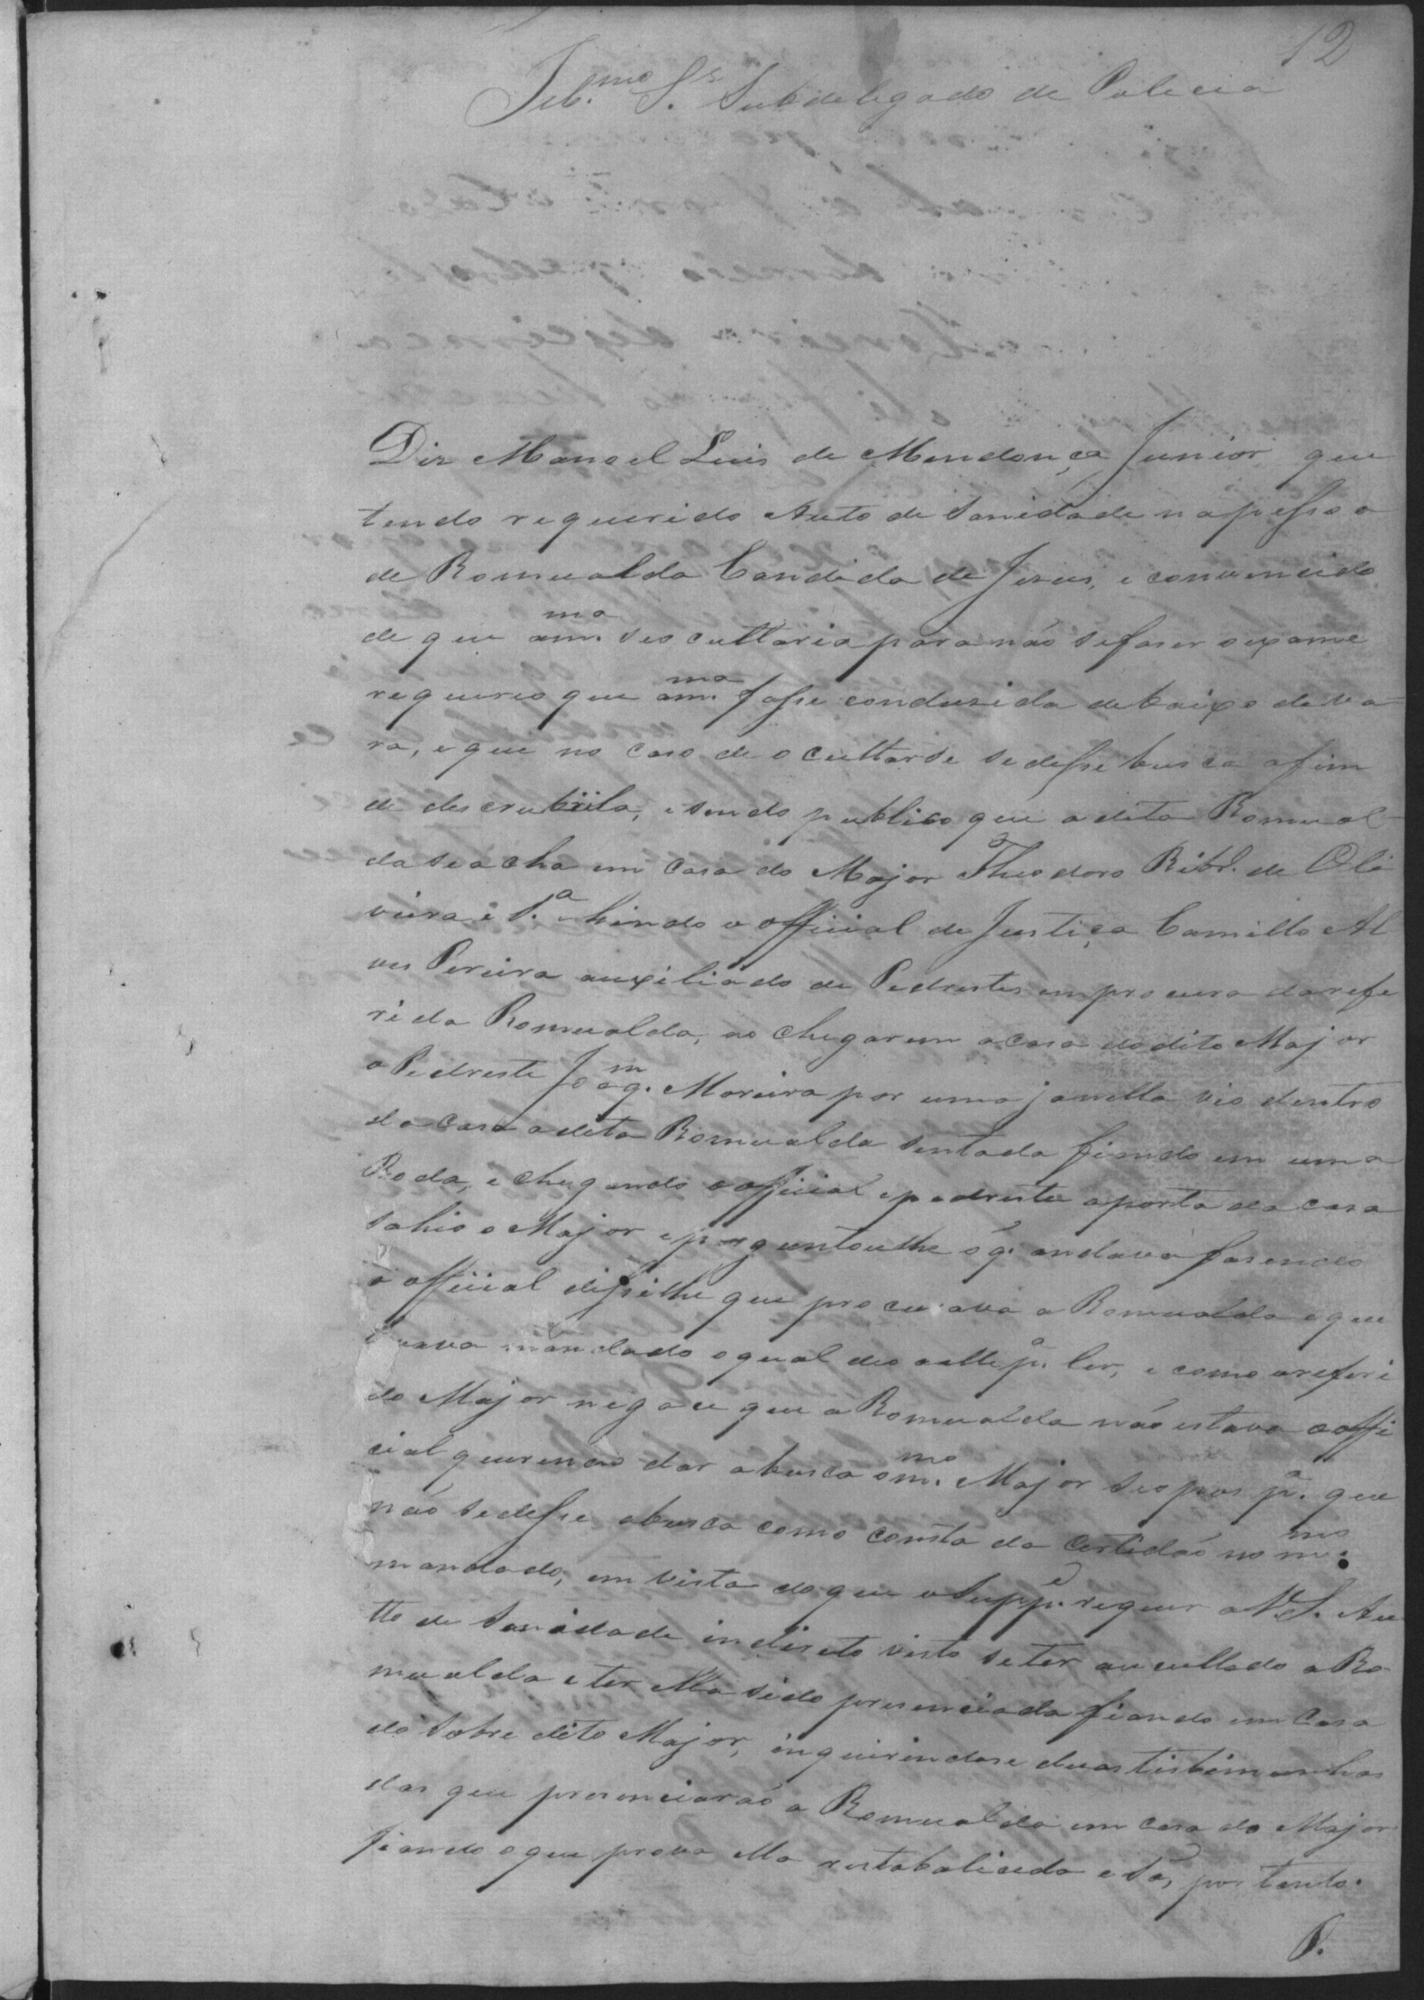 12
Illmo. Sr. Subdelegado de Policia
Diz Manoel Luis de Mendonça Junior, que
tendo requerido Auto de Sanidade na pessoa
de Romualda Candida de Jesus, e convencido
de que a mma. se o cultaria para não se faser o exame
requereo que a mma. fosse condusida debaixo de va-
ra, e que no caso de o cultarse se desse busca afim
de descrubilla, e sendo publico que a dita Romual-
da se acha em casa do Major Theodoro Ribr.o de Oli
veira e Sa. hindo o official de Justiça Camillo Al
ves Pereira auxiliado de Pedrestes em procura da refe
rida Romualda, ao chegarem a casa do dito Major
o Pedreste Joaqm. Moreira por uma janella vio dentro
da casa a dita Romualda sentada fiando em uma
Roda, e chegando o official e pedreste a porta da casa
sahio o Major e perguntoulhe o q. andava fasendo
o official disselhe que procurava a Romualda e que
levava mandado o qual deo a elle pa. ler, e como o referi
do Major negace que a Romualda não estava o offi
cial querendo dar a busca o mmo. Major se opos pa. que
não se desse a busca como consta da Certidão no mmo.
mandado, em vista do que o Suppe. requer a V.S. Au
tto de Sanidade indireto visto se ter au cultado a Ro-
mualda e ter Ella sido presenciada fiando em Casa
do Sobre dito Major, inquirindose duas testemunhas
das que presenciarão a Romualda em casa do Major
fiando o que prova Ella restabalicida e Sã, por tanto.
P.